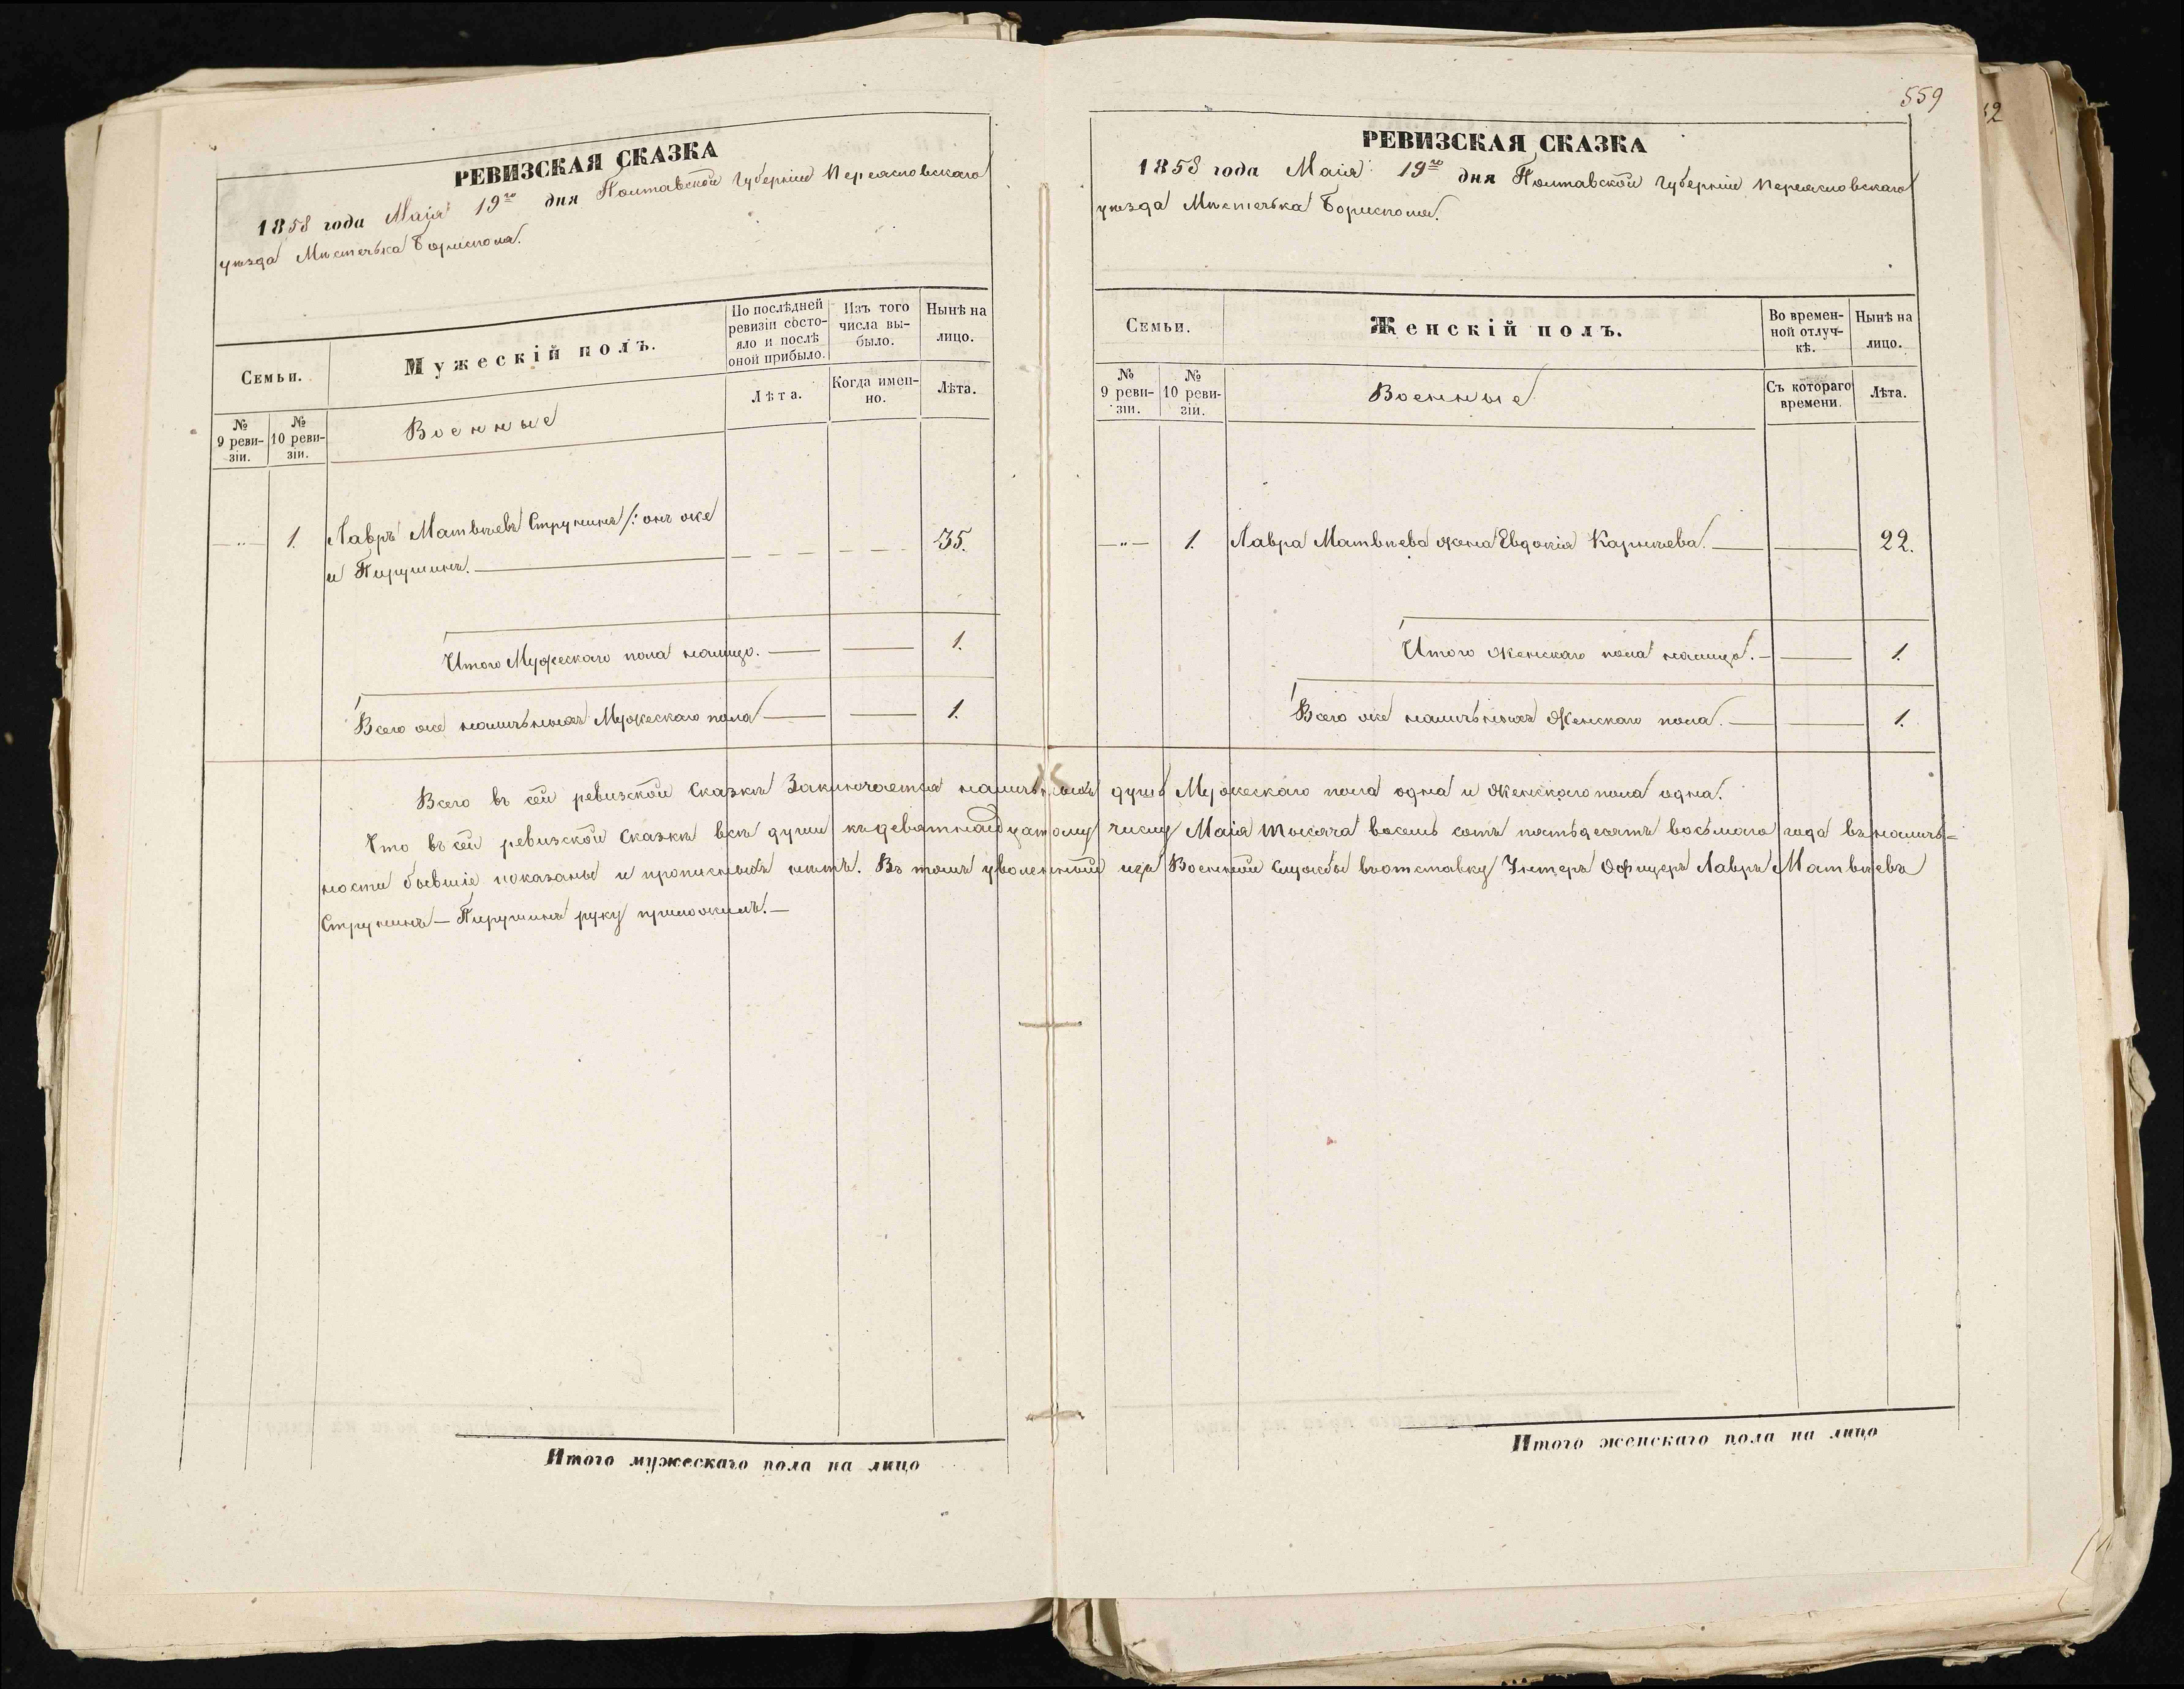 РЕВИЗСКАЯ СКАЗКА
1858 года Маія 19го дня Полтавской губерніи Переясловскаго
уѣзда Мѣстечька Борисполя.
Семьи.
Мужескій полъ.
По послѣдней ревизіи состояло и послѣ оной прибыло.
Изъ того числа выбыло.
Нынѣ на лицо.
№ 9 ревизіи.
№ 10 ревизіи.
Военные
Лѣта.
Когда именно.
Лѣта.
—„— 1. Лавръ Матвѣевъ Струнинъ /: онъ же 35.
и Пирушинъ.
Итого Мужескаго пола налицо. 1.
Всего же наличьныхъ Мужескаго пола 1.
559
РЕВИЗСКАЯ СКАЗКА
1858 года Маія 19го дня Полтавской губерніи Переясловскаго
уѣзда Мѣстечька Борисполя.
Семьи.
Женскій полъ.
Во временной отлучкѣ.
Нынѣ на лицо.
№ 9 ревизіи.
№ 10 ревизіи.
Военные
Съ котораго времени.
Лѣта.
—„— 1. Лавра Матвѣева жена Евдокія 22.
Итого Женскаго пола налицо. 1.
Всего же наличьныхъ Женскаго пола. 1.
Всего въ сей ревизской сказкѣ Заключается наличьныхъ душъ Мужескаго пола одна и Женскаго пола одна.
Что въ сей ревизской сказкѣ всѣ души къ девятнадцатому числу Маія тысяча восемь сотъ пятьдесятъ восьмаго года въ наличь=
ности бывшіе показаны и прописныхъ нѣтъ. Въ томъ уволенный изъ Военной службы въ отставку Унтеръ Офицеръ Лавръ Матвѣевъ
Струнинъ — Пирушинъ руку приложилъ. —
Итого мужескаго пола на лицо
Итого женскаго пола на лицо